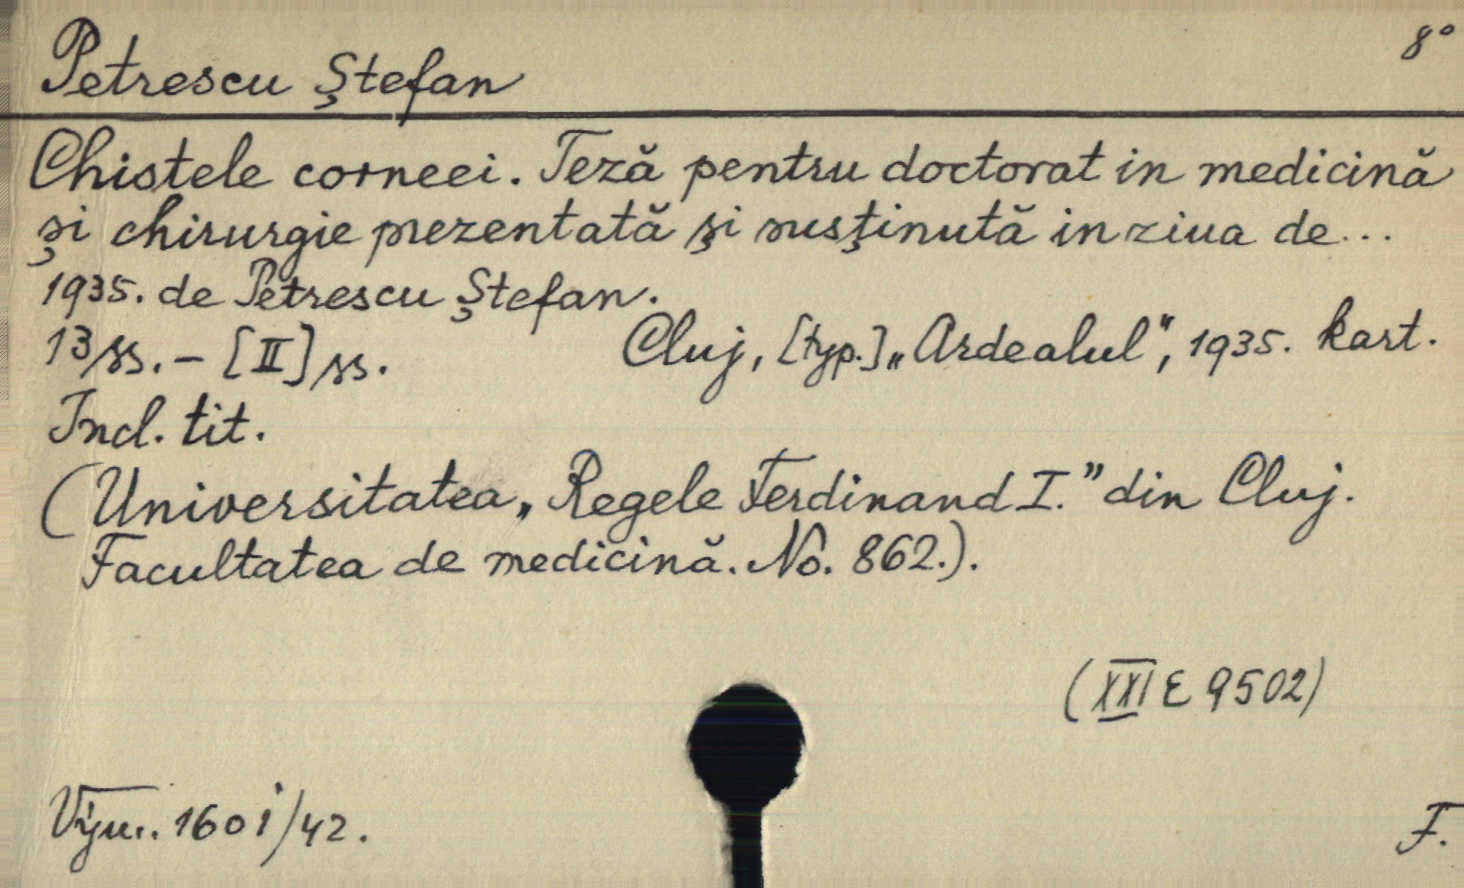 Petrescu Ștefan 8°
Chistele corneei. Teză pentru doctorat in medicină
și chirurgie prezentată și susținută in ziua de...
1935. de Petrescu Ștefan.
13 ss. - [II] ss. Cluj, [typ.] „Ardealul", 1935. kart.
Incl. tit.
(Universitatea „Regele Ferdinand I." din Cluj.
Facultatea de medicină. No. 862.).
(XXI E 9502)
1601/42. F.